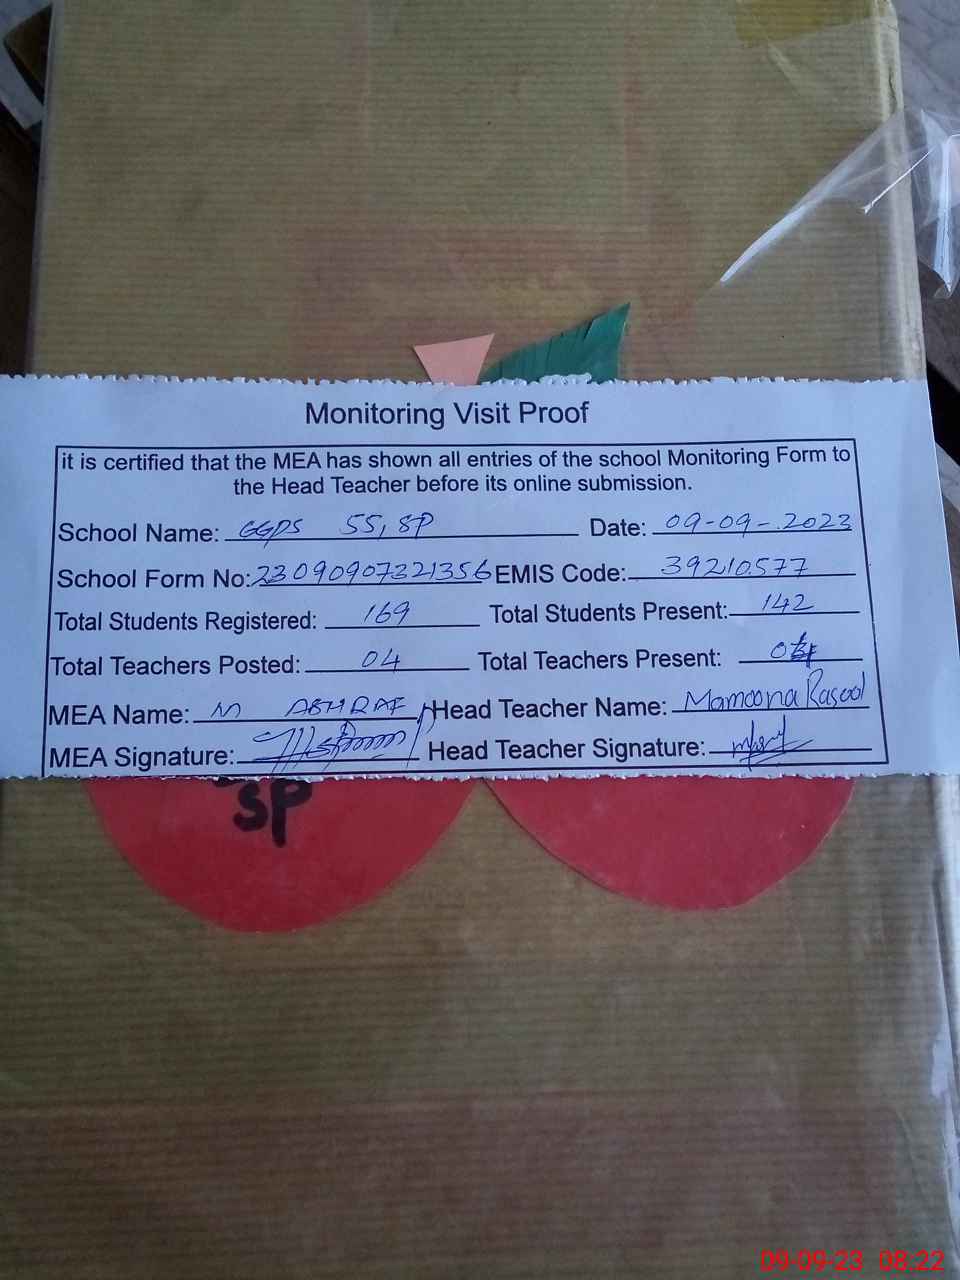 Monitoring Visit Proof
it is certified that the MEA has shown all entries of the school Monitoring Form to
the Head Teacher before its online submission.
School Name: GGPS 55, SP Date: 09-09-2023
School Form No: 23090907321356 EMIS Code: 39210577
Total Students Registered: 169 Total Students Present: 142
Total Teachers Posted: 04 Total Teachers Present:
MEA Name: M ASHRAF Head Teacher Name: Mamoona Rasool
MEA Signature: Head Teacher Signature:
SP
09-09-23 08:22